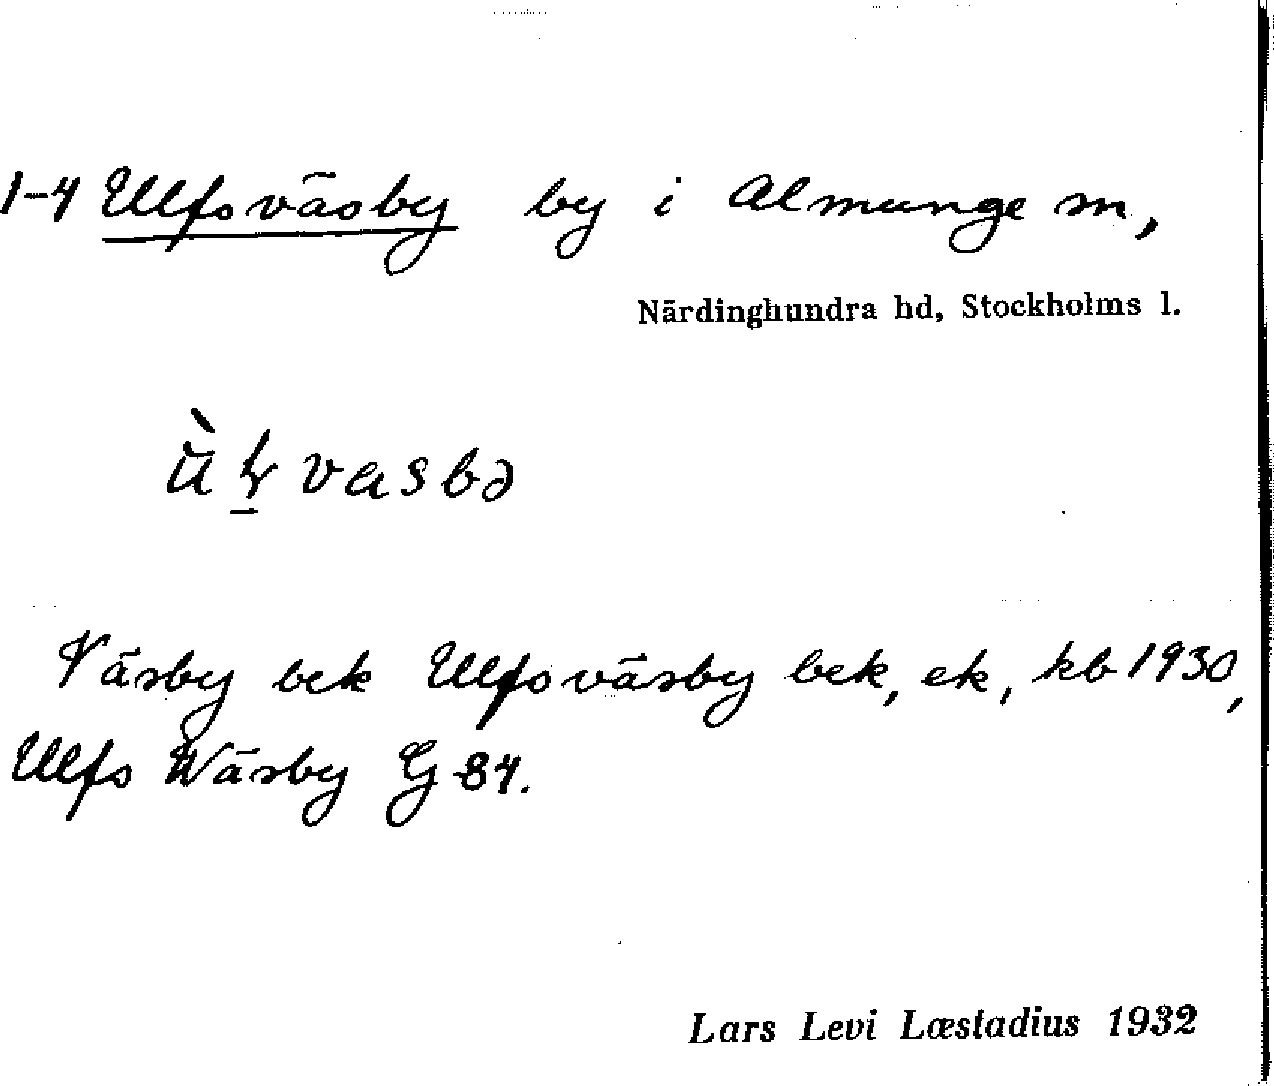 1-4 Ulfsväsby by i Almunge sn,
Närdinghundra hd, Stockholms l.
Väsby bek Ulfsväsby bek, ek, kb 1930,
Ulfs Wäsby G 84.
Lars Levi Læstadius 1932